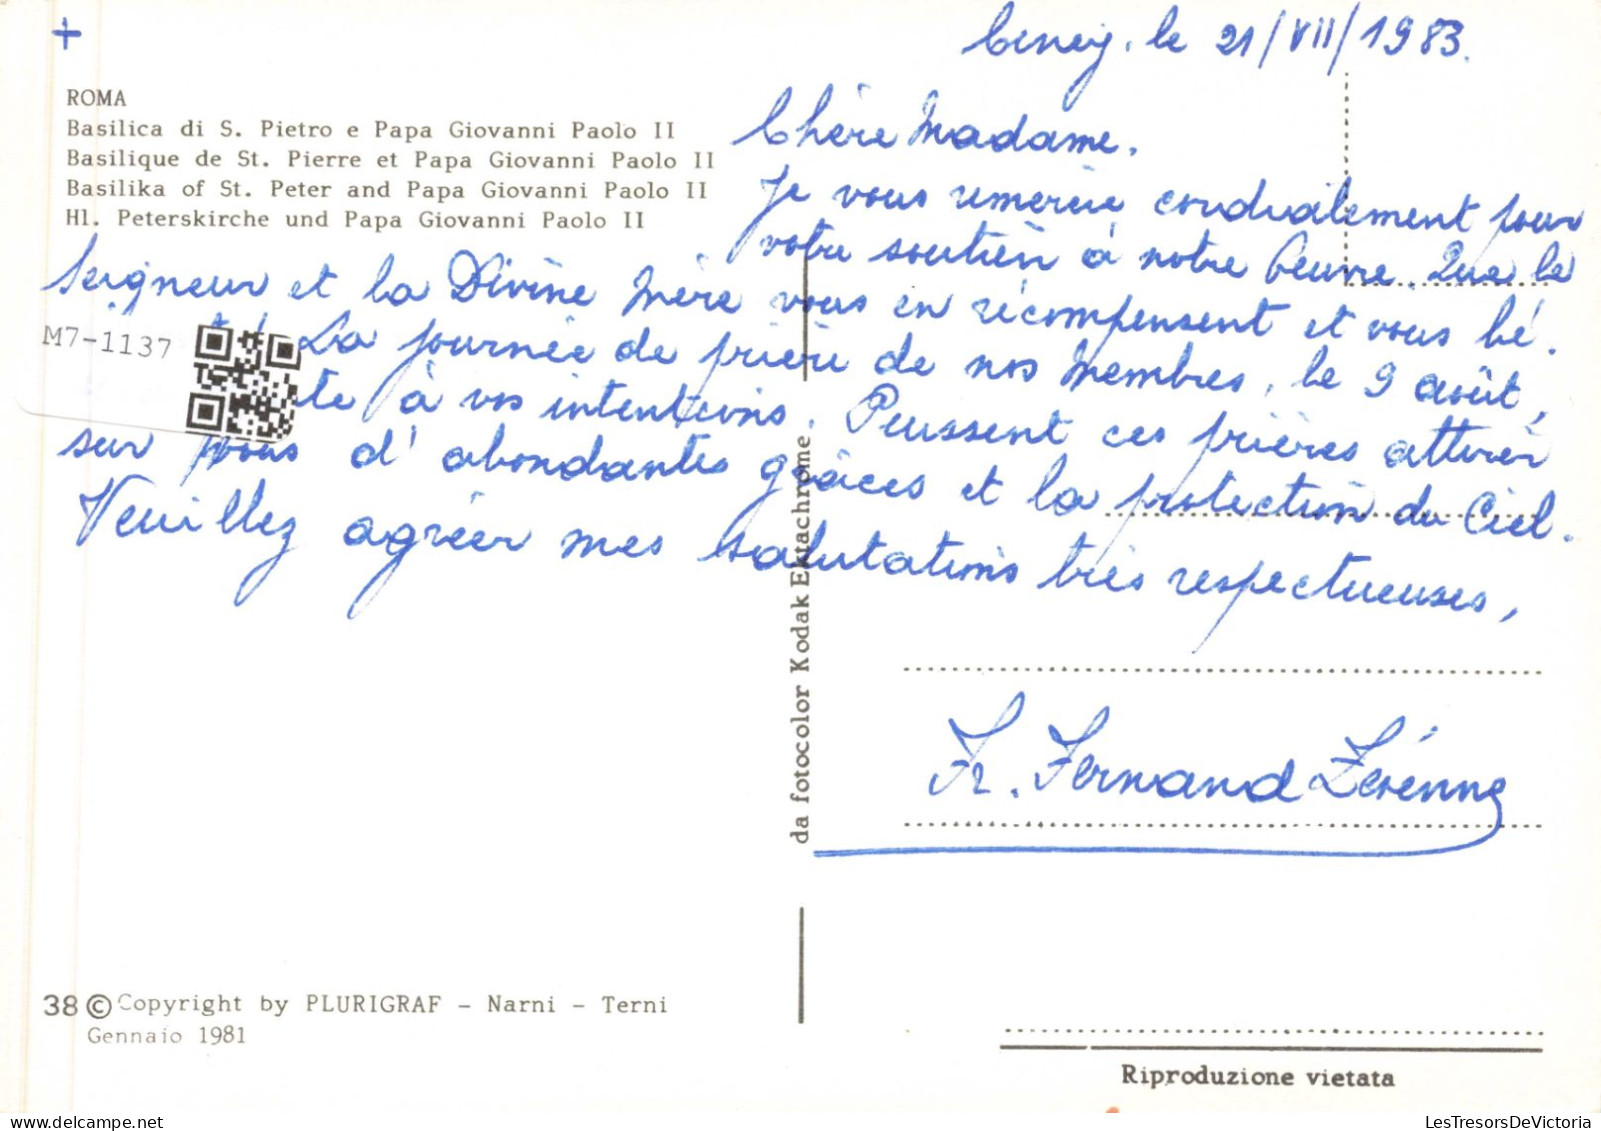 +
Ciney, le 21/VII/1983.
ROMA
Basilica di S. Pietro e Papa Giovanni Paolo II
Basilique de St. Pierre et Papa Giovanni Paolo II
Basilika of St. Peter and Papa Giovanni Paolo II
Hl. Peterskirche und Papa Giovanni Paolo II
Chère Madame,
Je vous remercie cordialement pour
votre soutien à notre Oeuvre. Que le
Seigneur et la Divine Mère vous en récompensent et vous bé-
La journée de prière de nos Membres, le 9 août,
te à vos intentions. Puissent ces prières attirer
sur vous d'abondantes grâces et la protection du Ciel.
Veuillez agréer mes salutations très respectueuses,
Fr. Fernand
M7-1137
da fotocolor Kodak Ektachrome
38 © Copyright by PLURIGRAF - Narni - Terni
Gennaio 1981
Riproduzione vietata
LesTresorsDeVictoria